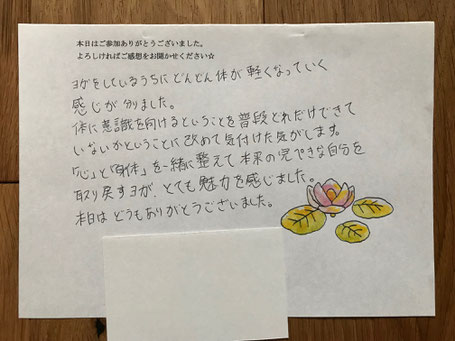 本日はご参加ありがとうございました。
よろしければご感想をお聞かせください☆
ヨガをしているうちにどんどん体が軽くなっていく
感じが分りました。
体に意識を向けるということを普段どれだけできて
いないかということに改めて気付けた気がします。
「心」と「身体」を一緒に整えて本来の完ぺきな自分を
取り戻すヨガ、とても魅力を感じました。
本日はどうもありがとうございました。